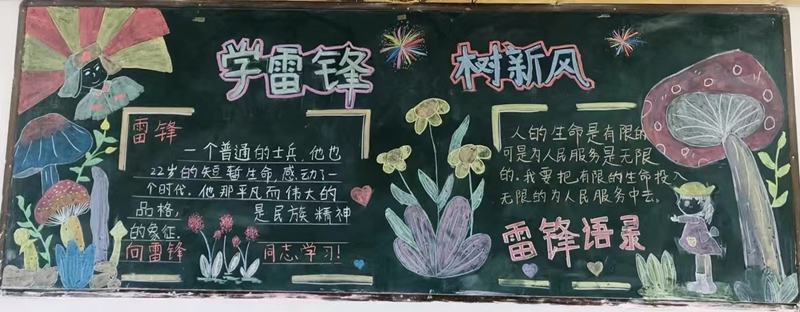 学雷锋 树新风
雷锋
一个普通的士兵，他也
22岁的短暂生命，感动了一
个时代。他那平凡而伟大的
品格， 是民族精神
的象征。
向雷锋 同志学习！
人的生命是有限的
可是为人民服务是无限
的，我要把有限的生命投入
无限的为人民服务中去。
雷锋语录